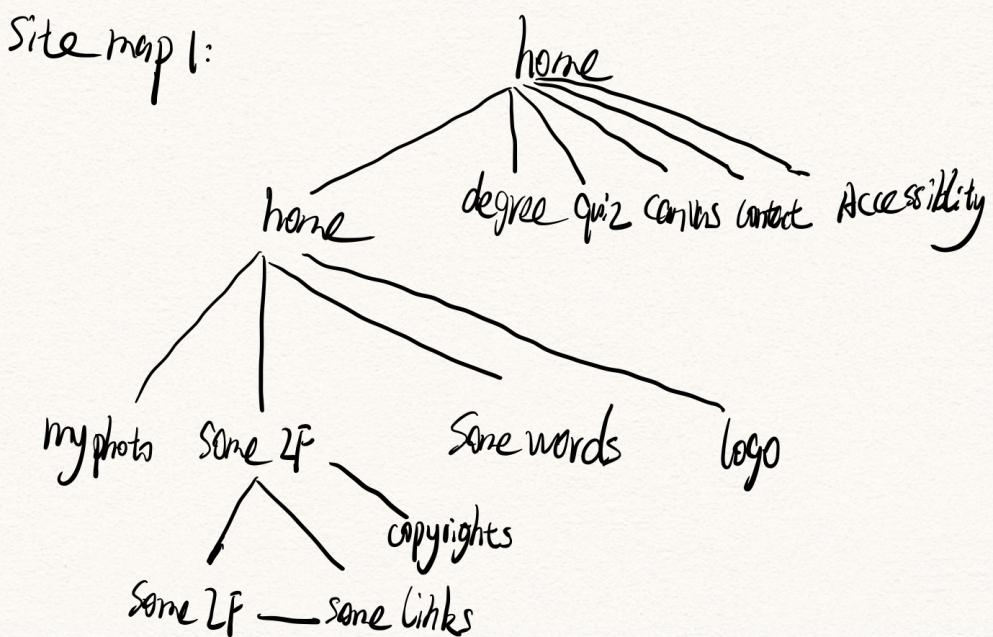 Site map 1:
home
home
degree quiz canvas contact Accessiblity
my photo some IF some words logo
copyrights
some IF some links